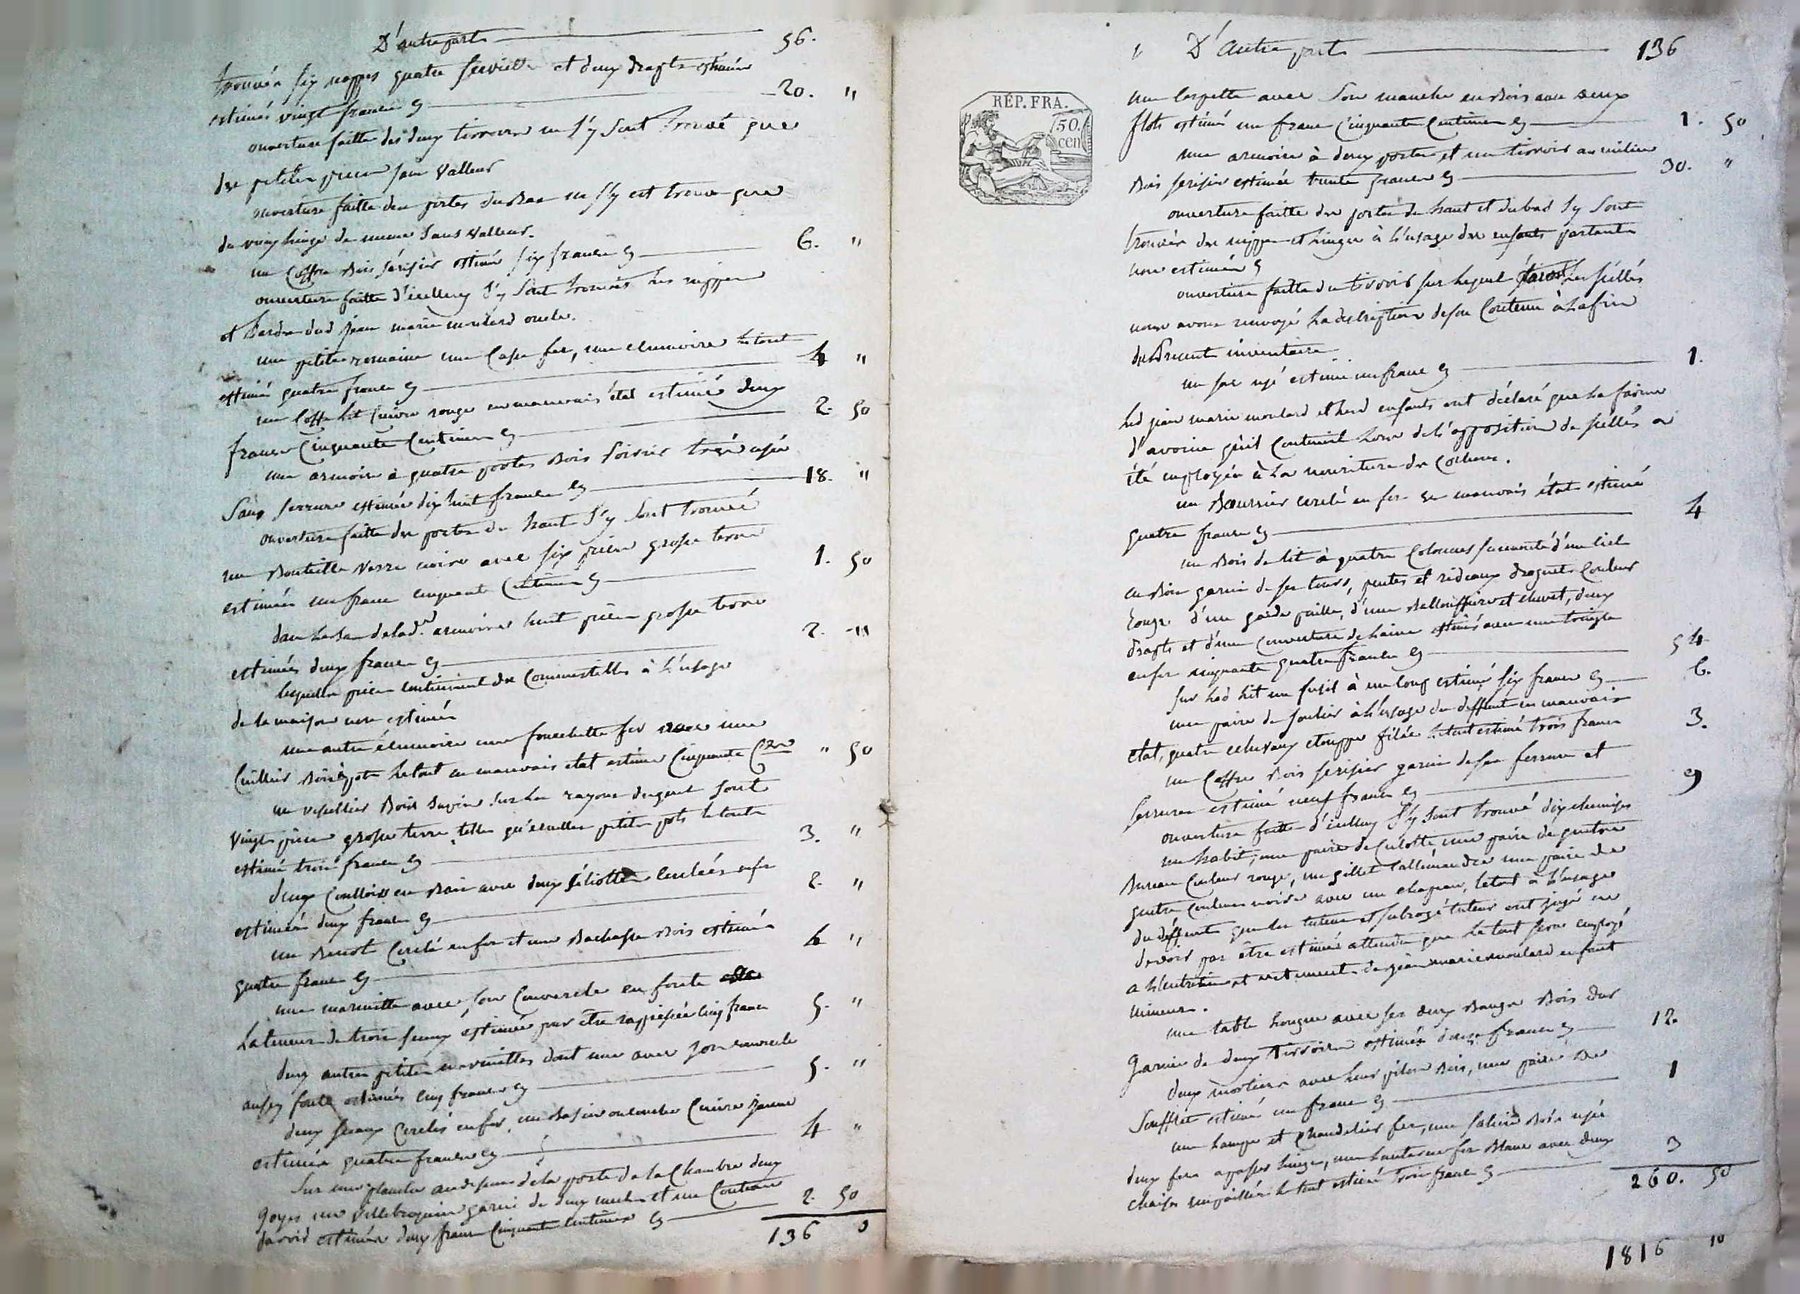 D'autrepart 56.
trouvés six nappes quatre serviette et deux drapts estimés
estimés vingt francs 20. "
ouverture faitte des deux tiroirs ne s'y sont trouvé que
des petites pieces sans valleur
ouverture faitte des portes du Bas ne s'y est trouvé que
du vieux linge de meme sans valleur.
un Coffre Bois serisier estimé six francs 6. "
ouverture faitte d'icelluy s'y sont trouvés les nippes
et hardes dud jean marie moulard oncle.
une petite romaine une Casse fer, une ecumoire le tout
estimé quatre francs 4 "
un Coffre lit Cuivre rouge en mauvais état estimé deux
francs Cinquante Centimes 2. 50
une armoire à quatre portes Bois noier très usée
Sans serrure estimée dix huit francs 18. "
ouverture faitte des portes du haut s'y sont trouvé
une Bouteille verre noire avec six pieces grosse terre
estimées un franc cinquante Centimes 1. 50
dans le Bas de lad. armoire huit pieces grosse terre
estimées deux francs 2. "
lesquelles pieces contiennent des Commestibles à l'usage
de la maison non estimés
une autre écumoire une fourchette fer une
Cuillier Bois le tout en mauvais etat estimé Cinquante Cmes " 50
un vesellier Bois Sapin sur les rayons duquel sont
vingt pieces grosse terre telles qu'ecuelles petits pots le tout
estimé trois francs 3. "
deux en Bois avec deux cerclées en fer
estimées deux francs 2. "
un Benot Cerclé en fer et une Bachasse Bois estimés
quatre francs 4 "
une marmitte avec son Couvercle en fonte
la teneur de trois seaux estimée pour etre rappiessée cinq francs 5. "
deux autres petites marmittes dont une avec son couvercle
aussy fonte estimés cinq francs 5. "
deux seaux Cerclés en fer, un Bassin ou Cuivre jaune
estimés quatre francs 4 "
Sur une planche au dessus de la porte de la Chambre deux
goyes une villebrequin garni de deux meches et un Couteau
estimés deux francs Cinquante Centimes 2. 50
136 0
D'Autre parts 136
RÉP. FRA.
50.
cen
une avec Son manche en Bois avec deux
flots estimé un franc Cinquante Centimes 1. 50
une armoire à deux portes et un tiroir au milieu
Bois serisier estimée trente francs 30. "
ouverture faitte des portes du haut et du bas s'y sont
trouvés des nippes et linges à l'usage des enfants partant
non estimés
ouverture faitte du tiroir sur lequel les scellés
nous avons renvoyé la description de son Contenu à la fin
du Présent inventaire
un sac usé estimé un franc 1.
led jean marie moulard et lesd enfants ont déclaré que la farine
d'avoine qu'il Contenoit lors de l'apposition de scellés a
été employée à la nourriture des Cochons.
un Beurrier cerclé en fer en mauvais état estimé
quatre francs 4
un Bois de lit à quatre Colonnes surmonté d'un Ciel
en Bois garni de ses tours, pentes et rideaux droguet Couleur
rouge d'une garde paille, d'une Balloufière et chevet, deux
drapts et d'une Couverture de laine estimé avec une tringle
en fer cinquante quatre francs 54
Sur led lit un fusil à un coup estimé six francs 6.
une paire de soulier à l'usage du deffunt en mauvais
etat, quatre echevaux etouppe filée le tout estimé trois francs 3.
un Coffre Bois serisier garni de sa ferrure et
serrure estimé neuf francs 9
ouverture faitte d'icelluy s'y sont trouvé dix chemises
un habit, une paire de Culotte une paire de guetre
Bureau Couleur rouge, un gillet une paire de
guetre Couleur noire avec un chapeau, le tout à l'usage
du deffunt que les tuteur et subrogé tuteur ont jugé ne
devoir pas être estimé attendu que le tout sera employé
à l'entretien et vetement de jean marie moulard enfant
mineur.
une table longue avec ses deux Bangs Bois dur
Garnie de deux tirroirs estimée douze francs 12.
deux mortiers avec leurs pilons Bois, une paire de
Soufflet estimé un franc 1
une lampe et Chandelier fer, une salière Bois usée
deux fers a passer linge, une lanterne fer Blanc avec deux
chaises empaillées le tout estimé trois francs 3
260. 50
1816 10